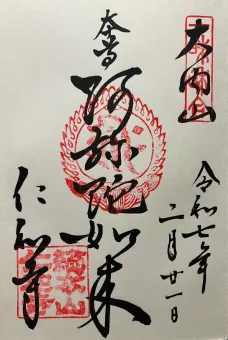 大内山
奉拝
阿弥陀如来
仁和寺
令和七年
二月廿一日